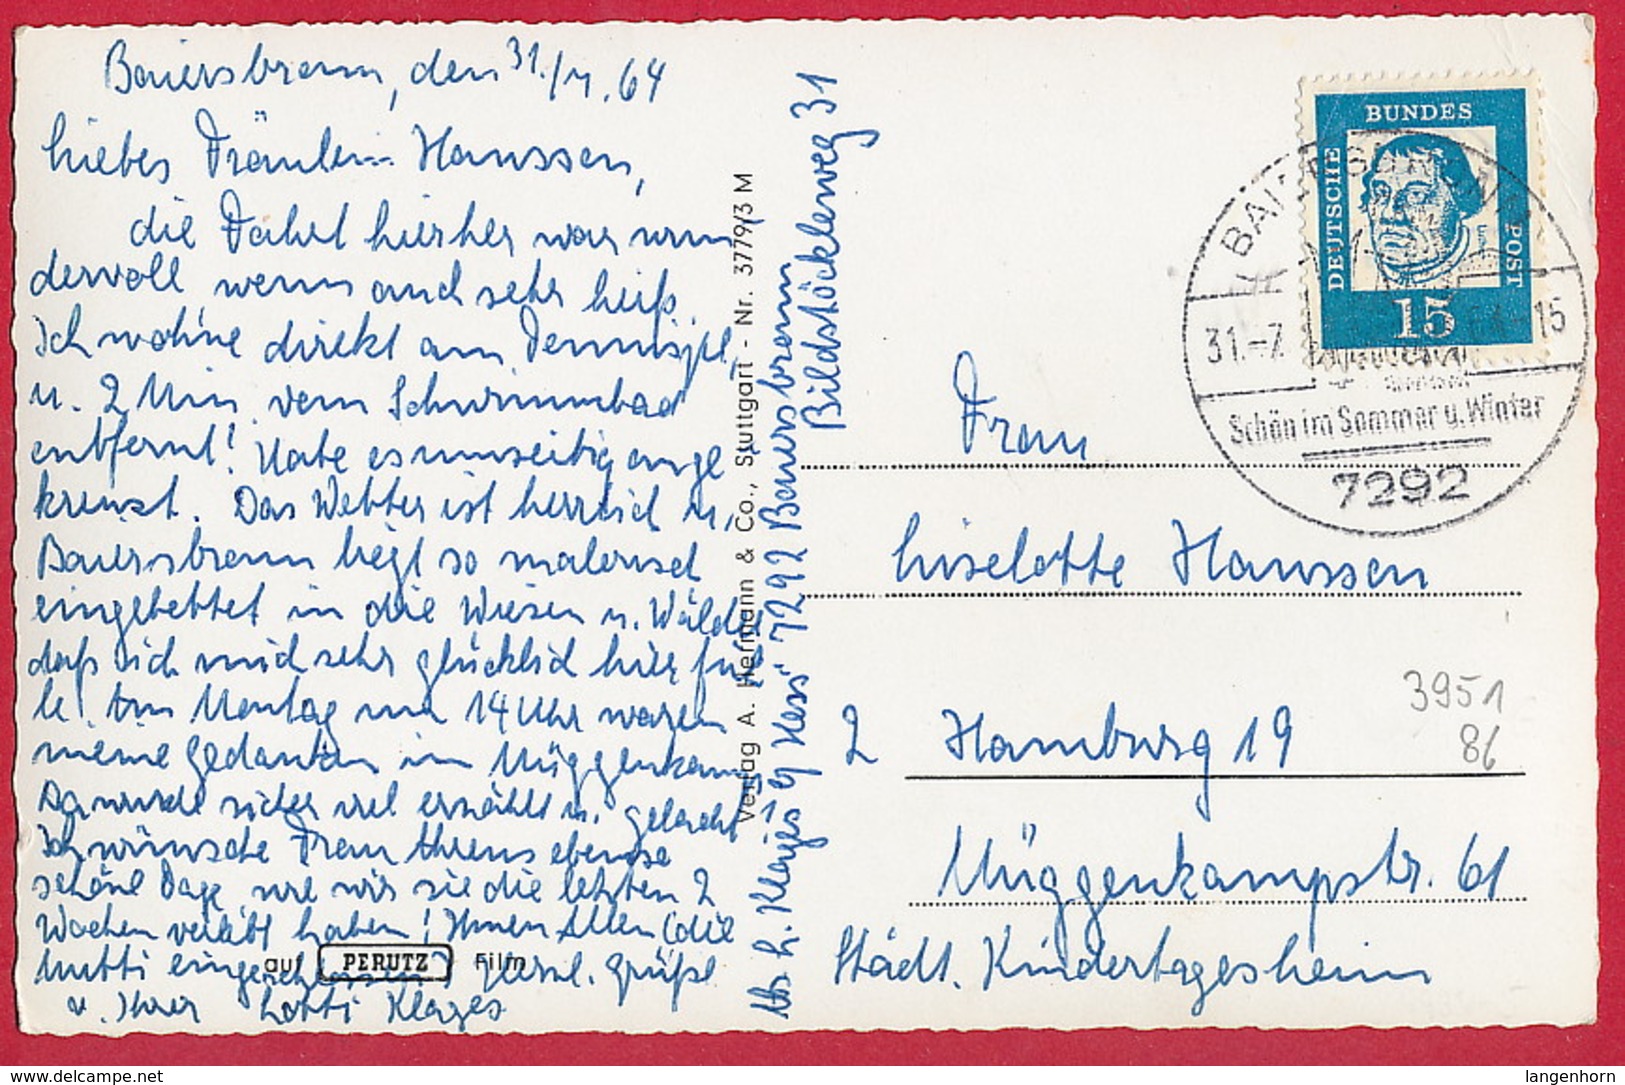 Baiersbronn, den 31./7. 64
Liebes Fräulein Hanssen,
die Fahrt hierher war wun
dervoll wenn auch sehr heiß.
Ich wohne direkt am Tennispl.,
u. 2 Min. vom Schwimmbad
entfernt! Habe es umseitig ange
kreuzt. Das Wetter ist herrlich u.
Baiersbronn liegt so malerisch
eingebettet in die Wiesen u. Wälder
daß ich mich sehr glücklich hier füh
le! Am Montag um 14 Uhr waren
meine Gedanken im Müggenkamp
Da wurde sicher viel erzählt u. gelacht
Ich wünsche Frau Ahrens ebenso
schöne Tage, wie wir sie die letzten 2
Wochen verlebt haben! Ihnen Allen (die
Mutti eingeschlossen) herzl. Grüße
u. Ihrer Lotti Klages
auf PERUTZ Film
Verlag A. Hermann & Co., Stuttgart - Nr. 3779/3 M
Abs. L. Klages b/ Hess 7292 Baiersbronn
Bildstöckleweg 31
DEUTSCHE BUNDES POST
15
BAIERSBRONN
31.-7. 64-15
Schön im Sommer u. Winter
7292
Frau
Liselotte Hanssen
2 Hamburg 19
Müggenkampstr. 61
Städt. Kindertagesheim
3951
86
www.delcampe.net
langenhorn